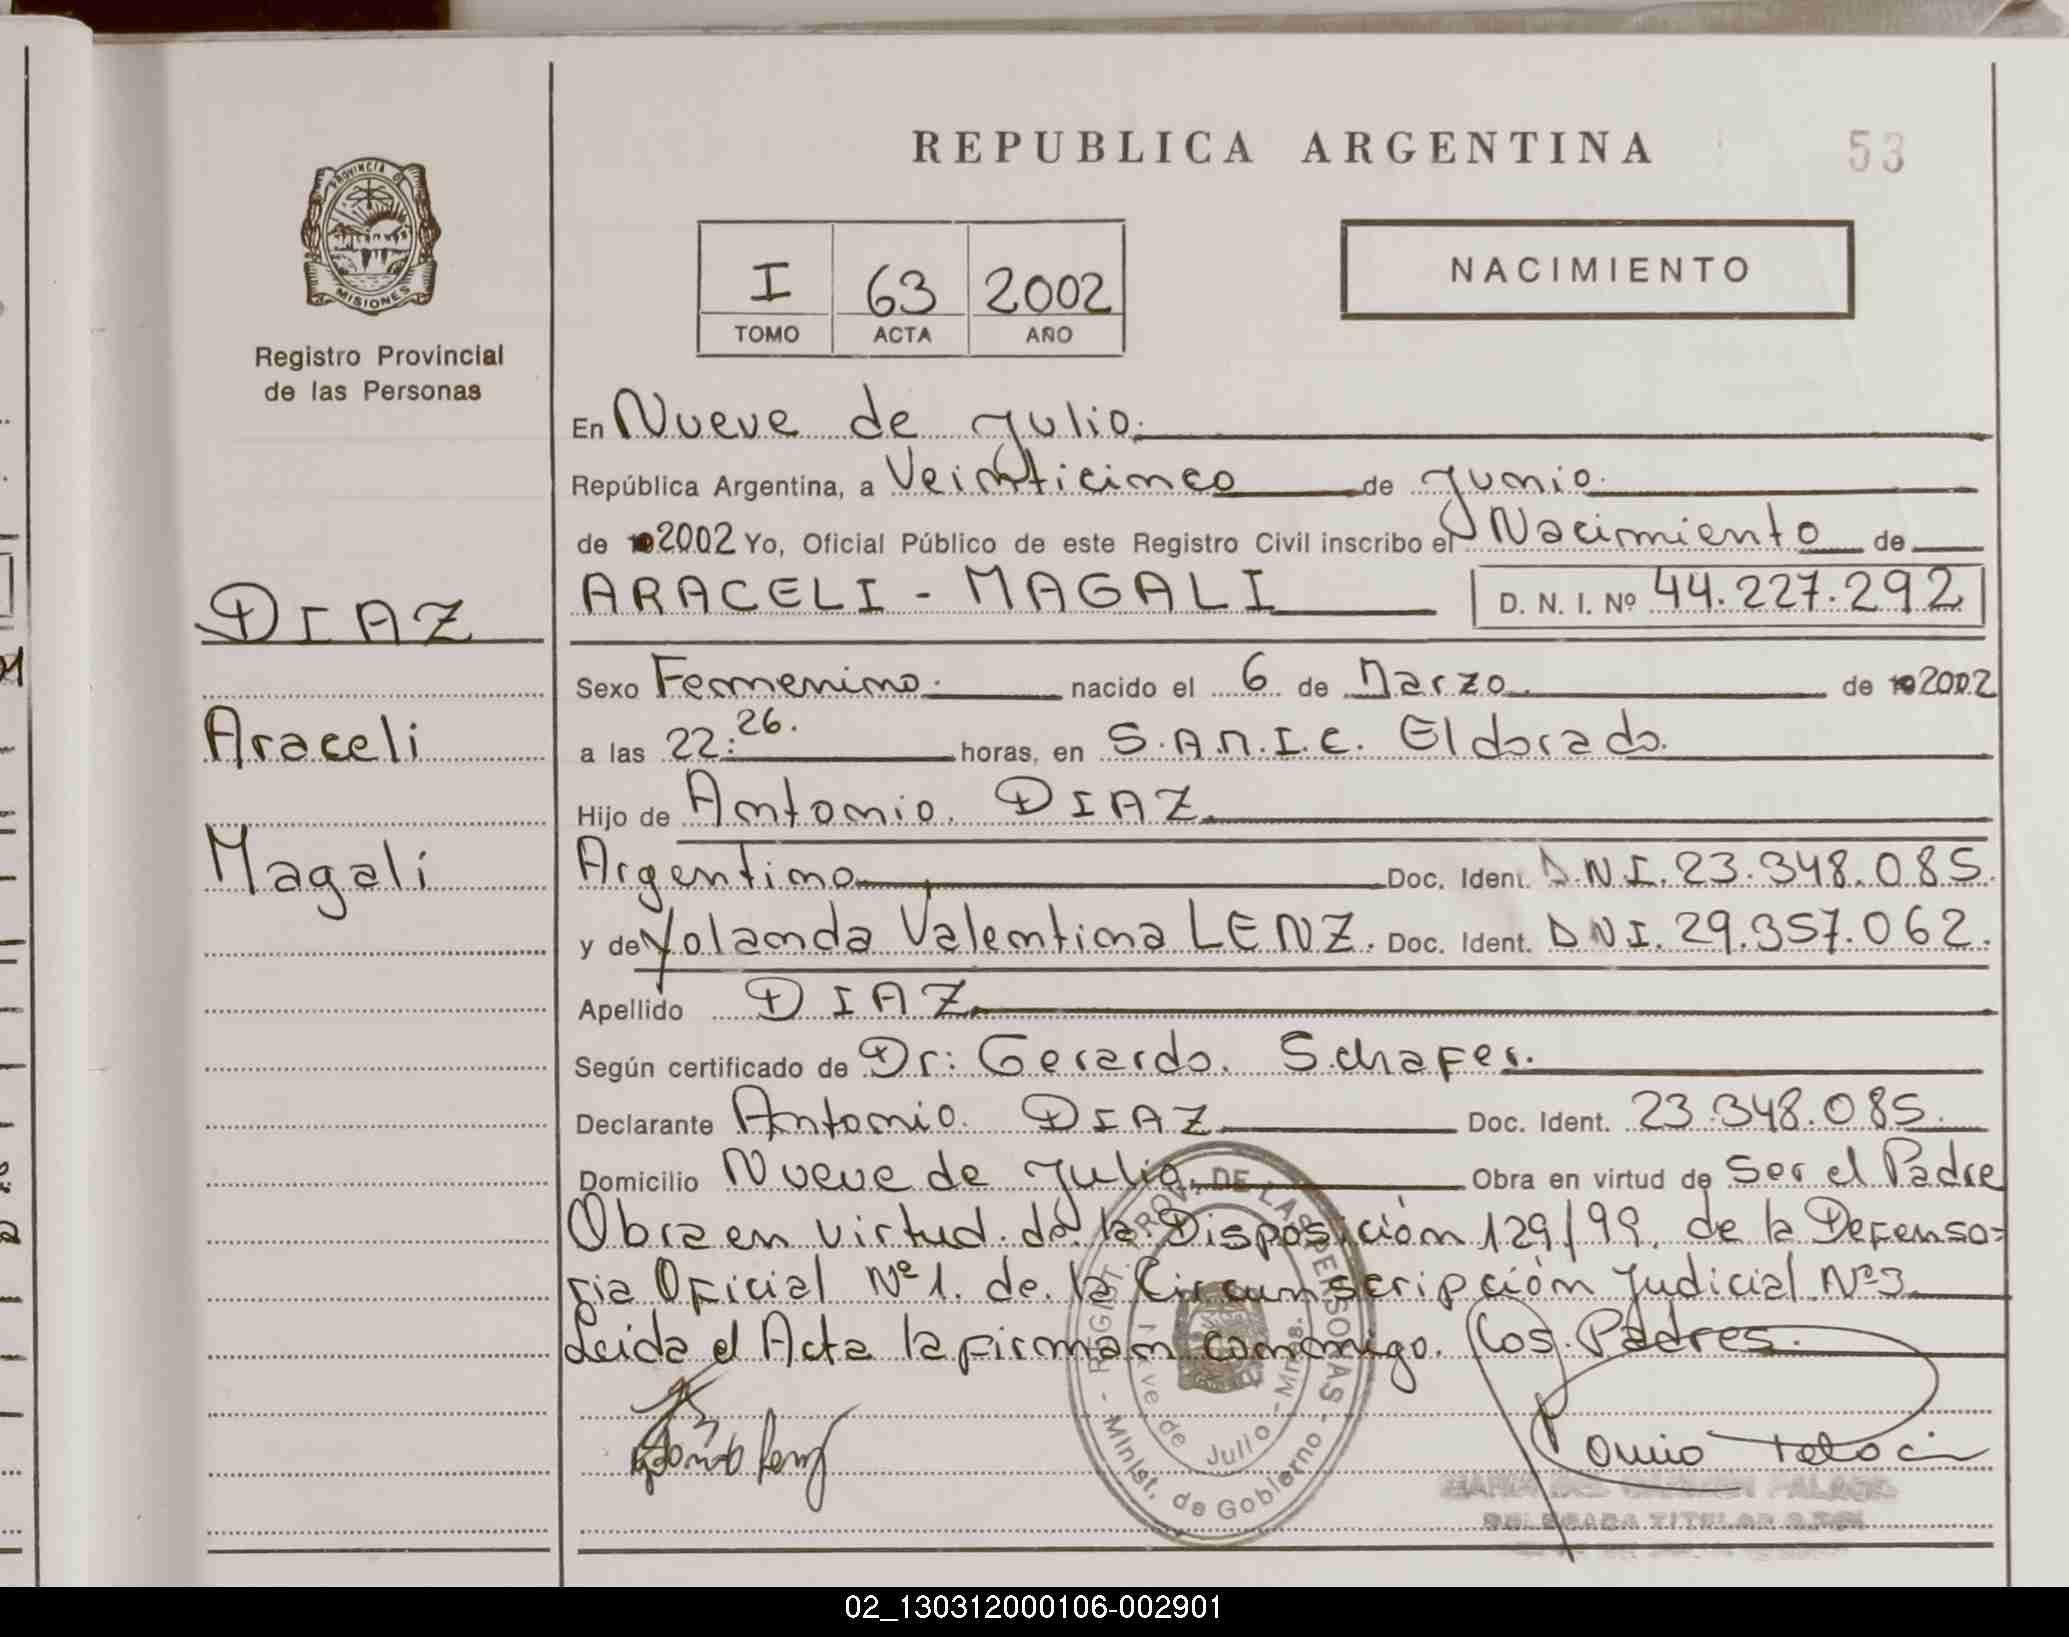 REPUBLICA ARGENTINA
53
PROVINCIA DE
MISIONES
Registro Provincial
de las Personas
I 63 2002
TOMO ACTA AÑO
NACIMIENTO
En Nueve de Julio.
República Argentina, a Veinticinco de Junio.
de 2002 Yo, Oficial Público de este Registro Civil inscribo el Nacimiento de
ARACELI - MAGALI D. N. I. Nº 44.227.292
DIAZ
Araceli
Magali
Sexo Femenino. nacido el 6 de Marzo de 2002
a las 22:26. horas, en S.A.M.I.C. Eldorado.
Hijo de Antonio DIAZ
Argentino Doc. Ident. D.N.I. 23.348.085.
y de Yolanda Valentina LENZ. Doc. Ident. D N I. 29.357.062.
Apellido DIAZ
Según certificado de Dr: Gerardo Schafer.
Declarante Antonio DIAZ Doc. Ident. 23.348.085.
Domicilio Nueve de Julio. Obra en virtud de Ser el Padre
Obra en virtud de la Disposición 129/99. de la Defenso=
ria Oficial Nº 1. de la Circunscripción Judicial Nº 3
Leida el Acta la firman conmigo. Los Padres.
REGIST. PROV. DE LAS PERSONAS
Minist. de Gobierno
de Julio - Mnes.
DELEGADA TITULAR
02_130312000106-002901